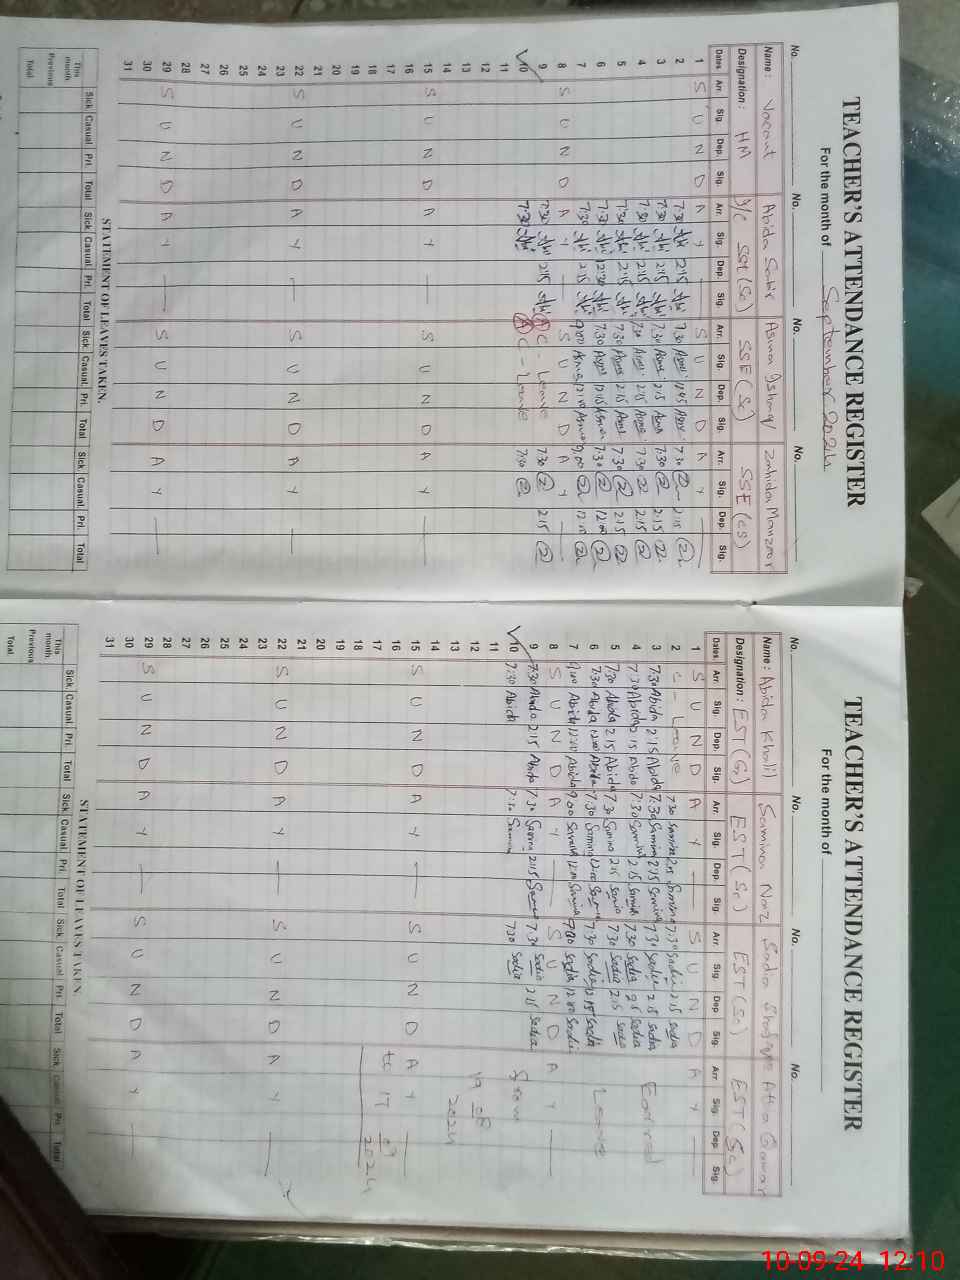 TEACHER'S ATTENDANCE REGISTER
For the month of September 2024
No. No. No. No.
Name: Vacant Abida Sabir Asma Ishaq Zahida Manzoor
Designation: HM I/C SST (Sc) SSE (Sc) SSE (CS)
Dates Arr. Sig. Dep. Sig. Arr. Sig. Dep. Sig. Arr. Sig. Dep. Sig. Arr. Sig. Dep. Sig.
1 S U N D A Y — S U N D A Y —
2 7:30 2:15 7:30 Asma 12:45 Asma 7:30 2:15
3 7:30 2:15 7:30 Asma 2:15 Asma 7:30 2:15
4 7:30 2:15 7:30 Asma 2:15 Asma 7:30 2:15
5 7:30 2:15 7:30 Asma 2:15 Asma 7:30 2:15
6 7:30 12:30 7:30 Asma 12:15 Asma 7:30 12:00
7 7:30 2:15 9:00 Asma 12:10 Asma 9:00 12:10
8 S U N D A Y — S U N D A Y —
9 7:30 2:15 A C - Leave 7:30 2:15
10 7:30 A C - Leave 7:30
11
12
13
14
15 S U N D A Y — S U N D A Y —
16
17
18
19
20
21
22 S U N D A Y — S U N D A Y —
23
24
25
26
27
28
29 S U N D A Y — S U N D A Y —
30
31
STATEMENT OF LEAVES TAKEN.
Sick Casual Pri. Total Sick Casual Pri. Total Sick Casual Pri. Total Sick Casual Pri. Total
This month
Previous
Total
TEACHER'S ATTENDANCE REGISTER
For the month of
No. No. No. No.
Name: Abida Khalil Samina Naz Sadia Atta
Designation: EST (G) EST (Sc) EST (Sc) EST (Sc)
Dates Arr. Sig. Dep. Sig. Arr. Sig. Dep. Sig. Arr. Sig. Dep. Sig. Arr. Sig. Dep. Sig.
1 S U N D A Y — S U N D A Y —
2 C - Leave 7:30 Samina 2:15 Samina 7:30 Sadia 2:15 Sadia
3 7:30 Abida 2:15 Abida 7:30 Samina 2:15 Samina 7:30 Sadia 2:15 Sadia Earned
4 7:30 Abida 2:15 Abida 7:30 Samina 2:15 Samina 7:30 Sadia 2:15 Sadia
5 7:30 Abida 2:15 Abida 7:30 Samina 2:15 Samina 7:30 Sadia 2:15 Sadia
6 7:30 Abida 12:00 Abida 7:30 Samina 12:00 Samina 7:30 Sadia 12:15 Sadia Leave
7 9:00 Abida 12:00 Abida 9:00 Samina 12:10 Samina 9:00 Sadia 12:00 Sadia
8 S U N D A Y — S U N D A Y —
9 7:30 Abida 2:15 Abida 7:30 Samina 2:15 Samina 7:30 Sadia 2:15 Sadia
10 7:30 Abida 7:30 Samina 7:30 Sadia from
11
12 19 08
13 2024
14
15 S U N D A Y — S U N D A Y —
16 to
17 17 09 2024
18
19
20
21
22 S U N D A Y — S U N D A Y —
23
24
25
26
27
28
29 S U N D A Y — S U N D A Y —
30
31
STATEMENT OF LEAVES TAKEN.
Sick Casual Pri. Total Sick Casual Pri. Total Sick Casual Pri. Total Sick Casual Pri. Total
This month.
Previous
Total
10-09-24 12:10